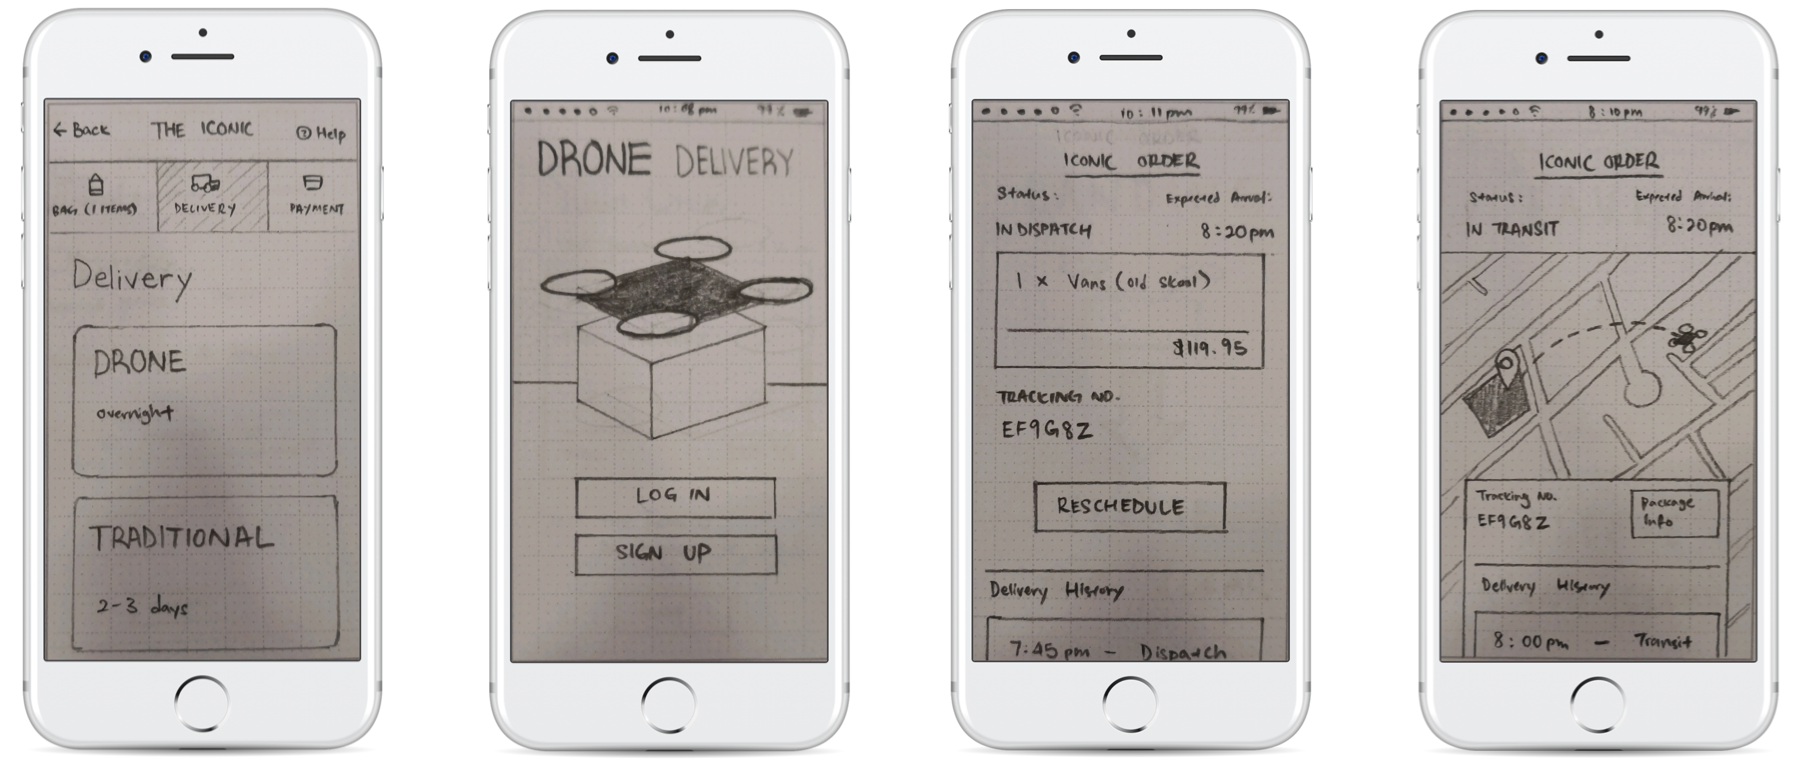 ← Back THE ICONIC ? Help
BAG (1 ITEMS) DELIVERY PAYMENT
Delivery
DRONE
overnight
TRADITIONAL
2-3 days
10:08pm 99%
DRONE DELIVERY
LOG IN
SIGN UP
10:11pm 99%
ICONIC ORDER
ICONIC ORDER
Status: Expected Arrival:
IN DISPATCH 8:20pm
1 x Vans (old skool)
$119.95
TRACKING NO.
EF9G8Z
RESCHEDULE
Delivery History
7:45 pm - Dispatch
8:10pm 99%
ICONIC ORDER
Status: Expected Arrival:
IN TRANSIT 8:20pm
Tracking No.
EF9G8Z
Package
Info
Delivery History
8:00pm - Transit